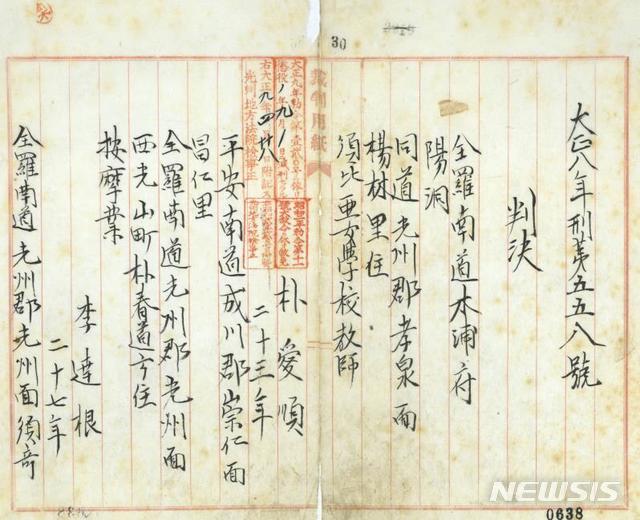 30
大正八年刑第五五八號
判決
全羅南道木浦府
陽洞
同道光州郡孝泉面
楊林里住
須比亜女學校教師
朴愛順
二十三年
平安南道成川郡崇仁面
昌仁里
全羅南道光州郡光州面
西光山町朴春道方住
按摩業
李達根
二十七年
全羅南道光州郡光州面須奇
裁判用紙
NEWSIS
0638